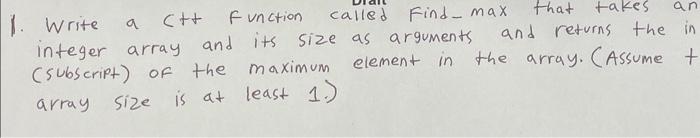 Draft
1. Write a C++ Function called Find_max that takes an
integer array and its size as arguments and returns the in
(subscript) of the maximum element in the array. (Assume t
array size is at least 1.)